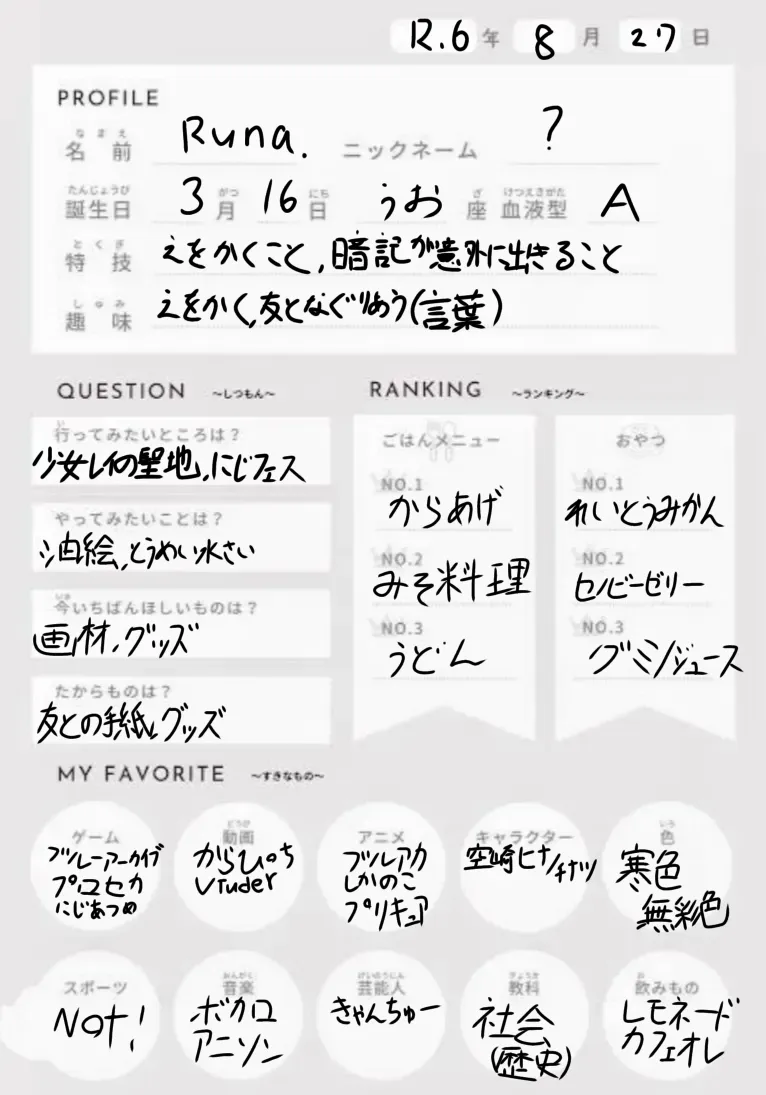 R.6年 8月 27日
PROFILE
なまえ
名前 Runa. ニックネーム ?
たんじょうび がつ にち ざ けつえきがた
誕生日 3月 16日 うお座 血液型 A
とくぎ
特技 えをかくこと,暗記が意外に出きること
しゅみ
趣味 えをかく,友となぐりあう(言葉)
QUESTION ~しつもん~
い
行ってみたいところは?
少女レイの聖地,にじフェス
やってみたいことは?
油絵,とうめい水さい
いま
今いちばんほしいものは?
画材,グッズ
たからものは?
友との手紙,グッズ
RANKING ~ランキング~
ごはんメニュー
NO.1
からあげ
NO.2
みそ料理
NO.3
うどん
おやつ
NO.1
れいとうみかん
NO.2
セノビーゼリー
NO.3
グミ/ジュース
MY FAVORITE ~すきなもの~
ゲーム
ブルーアーカイブ
プロセカ
にじあつめ
どうが
動画
からぴち
Vtuder
アニメ
ブルアカ
しかのこ
プリキュア
キャラクター
空崎ヒナ/チナツ
いろ
色
寒色
無彩色
スポーツ
Not!
おんがく
音楽
ボカロ
アニソン
げいのうじん
芸能人
きゃんちゅー
きょうか
教科
社会
(歴史)
の
飲みもの
レモネード
カフェオレ